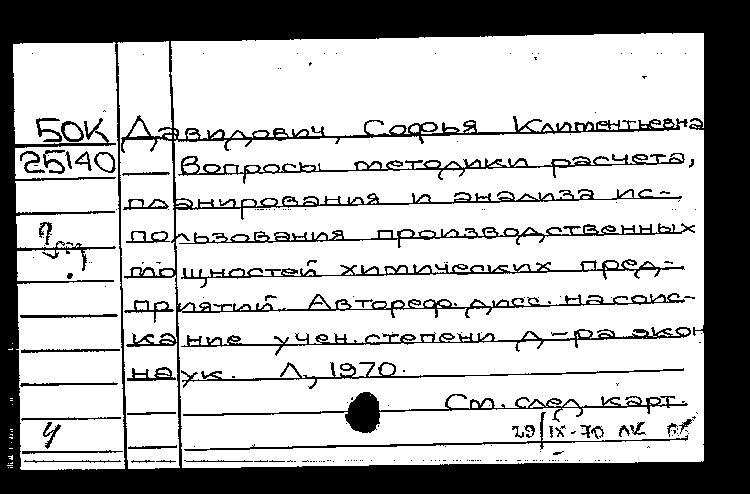 50К Давидович, Софья Климентьевна
25140 Вопросы методики расчета,
планирования и анализа ис-
пользования производственных
мощностей химических пред-
приятий. Автореф. дисс. на соис-
кание учен. степени д-ра экон
наук. Л., 1970.
См. след. карт.
У
29/IX-70 ЛК